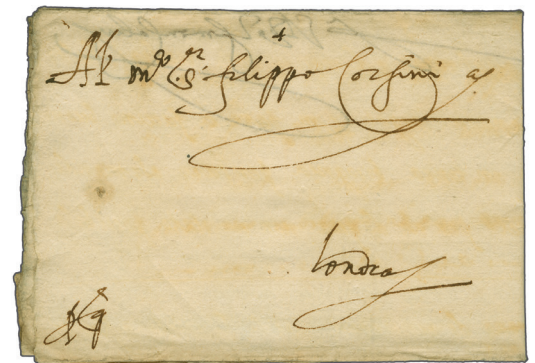 Al m.to S.r filippo Corsini a
Londra